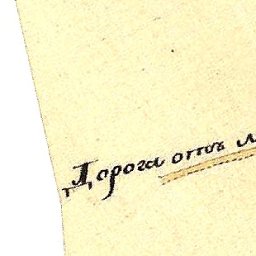 Дорога отъ